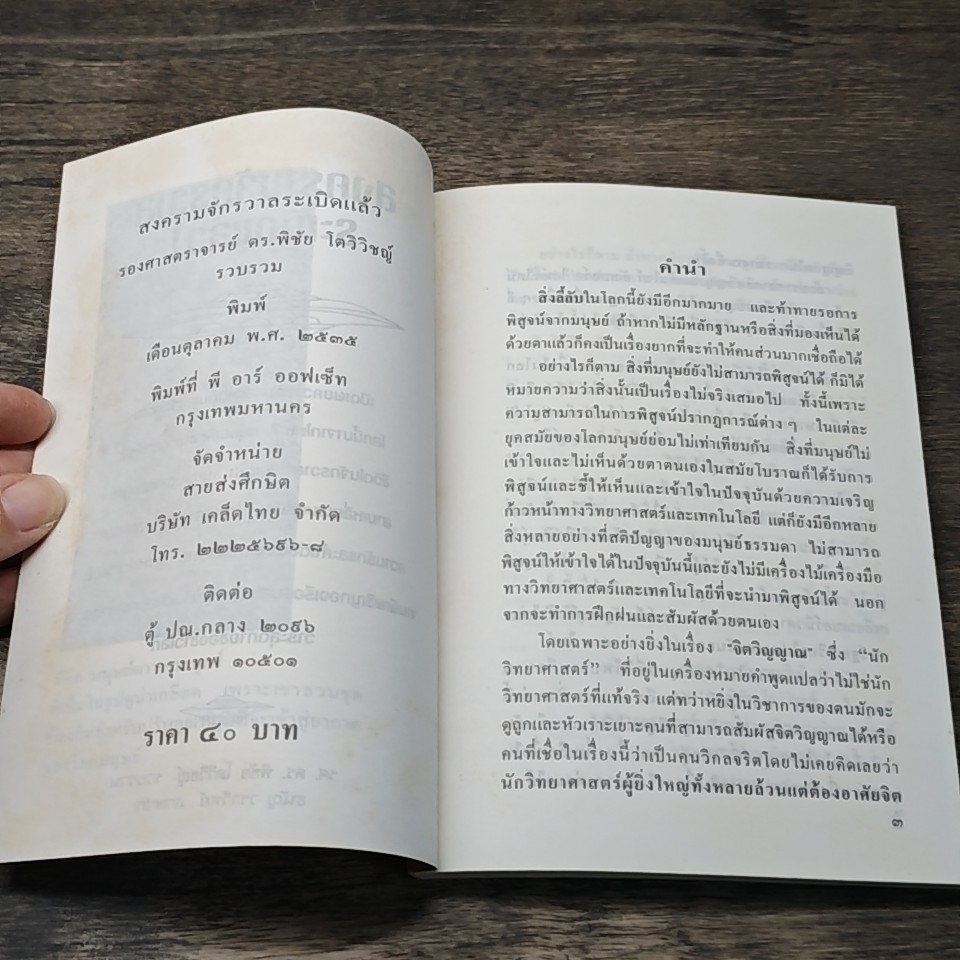 สงครามจักรวาลระเบิดแล้ว
รองศาสตราจารย์ ดร.พิชัย โตวิวิชญ์
รวบรวม
พิมพ์
เดือนตุลาคม พ.ศ. ๒๕๓๕
พิมพ์ที่ พี อาร์ ออฟเซ็ท
กรุงเทพมหานคร
จัดจำหน่าย
สายส่งศึกษิต
บริษัท เคล็ดไทย จำกัด
โทร. ๒๒๒๕๖๙๖-๘
ติดต่อ
ตู้ ปณ.กลาง ๒๐๙๖
กรุงเทพ ๑๐๕๐๑
ราคา ๔๐ บาท
คำนำ
สิ่งลี้ลับในโลกนี้ยังมีอีกมากมาย และท้าทายรอการ
พิสูจน์จากมนุษย์ ถ้าหากไม่มีหลักฐานหรือสิ่งที่มองเห็นได้
ด้วยตาแล้วก็คงเป็นเรื่องยากที่จะทำให้คนส่วนมากเชื่อถือได้
อย่างไรก็ตาม สิ่งที่มนุษย์ยังไม่สามารถพิสูจน์ได้ ก็มิได้
หมายความว่าสิ่งนั้นเป็นเรื่องไม่จริงเสมอไป ทั้งนี้เพราะ
ความสามารถในการพิสูจน์ปรากฏการณ์ต่าง ๆ ในแต่ละ
ยุคสมัยของโลกมนุษย์ย่อมไม่เท่าเทียมกัน สิ่งที่มนุษย์ไม่
เข้าใจและไม่เห็นด้วยตาตนเองในสมัยโบราณก็ได้รับการ
พิสูจน์และชี้ให้เห็นและเข้าใจในปัจจุบันด้วยความเจริญ
ก้าวหน้าทางวิทยาศาสตร์และเทคโนโลยี แต่ก็ยังมีอีกหลาย
สิ่งหลายอย่างที่สติปัญญาของมนุษย์ธรรมดา ไม่สามารถ
พิสูจน์ให้เข้าใจได้ในปัจจุบันนี้และยังไม่มีเครื่องไม้เครื่องมือ
ทางวิทยาศาสตร์และเทคโนโลยีที่จะนำมาพิสูจน์ได้ นอก
จากจะทำการฝึกฝนและสัมผัสด้วยตนเอง
โดยเฉพาะอย่างยิ่งในเรื่อง "จิตวิญญาณ" ซึ่ง "นัก
วิทยาศาสตร์" ที่อยู่ในเครื่องหมายคำพูดแปลว่าไม่ใช่นัก
วิทยาศาสตร์ที่แท้จริง แต่ทว่าหยิ่งในวิชาการของตนมักจะ
ดูถูกและหัวเราะเยาะคนที่สามารถสัมผัสจิตวิญญาณได้หรือ
คนที่เชื่อในเรื่องนี้ว่าเป็นคนวิกลจริตโดยไม่เคยคิดเลยว่า
นักวิทยาศาสตร์ผู้ยิ่งใหญ่ทั้งหลายล้วนแต่ต้องอาศัยจิต
๓